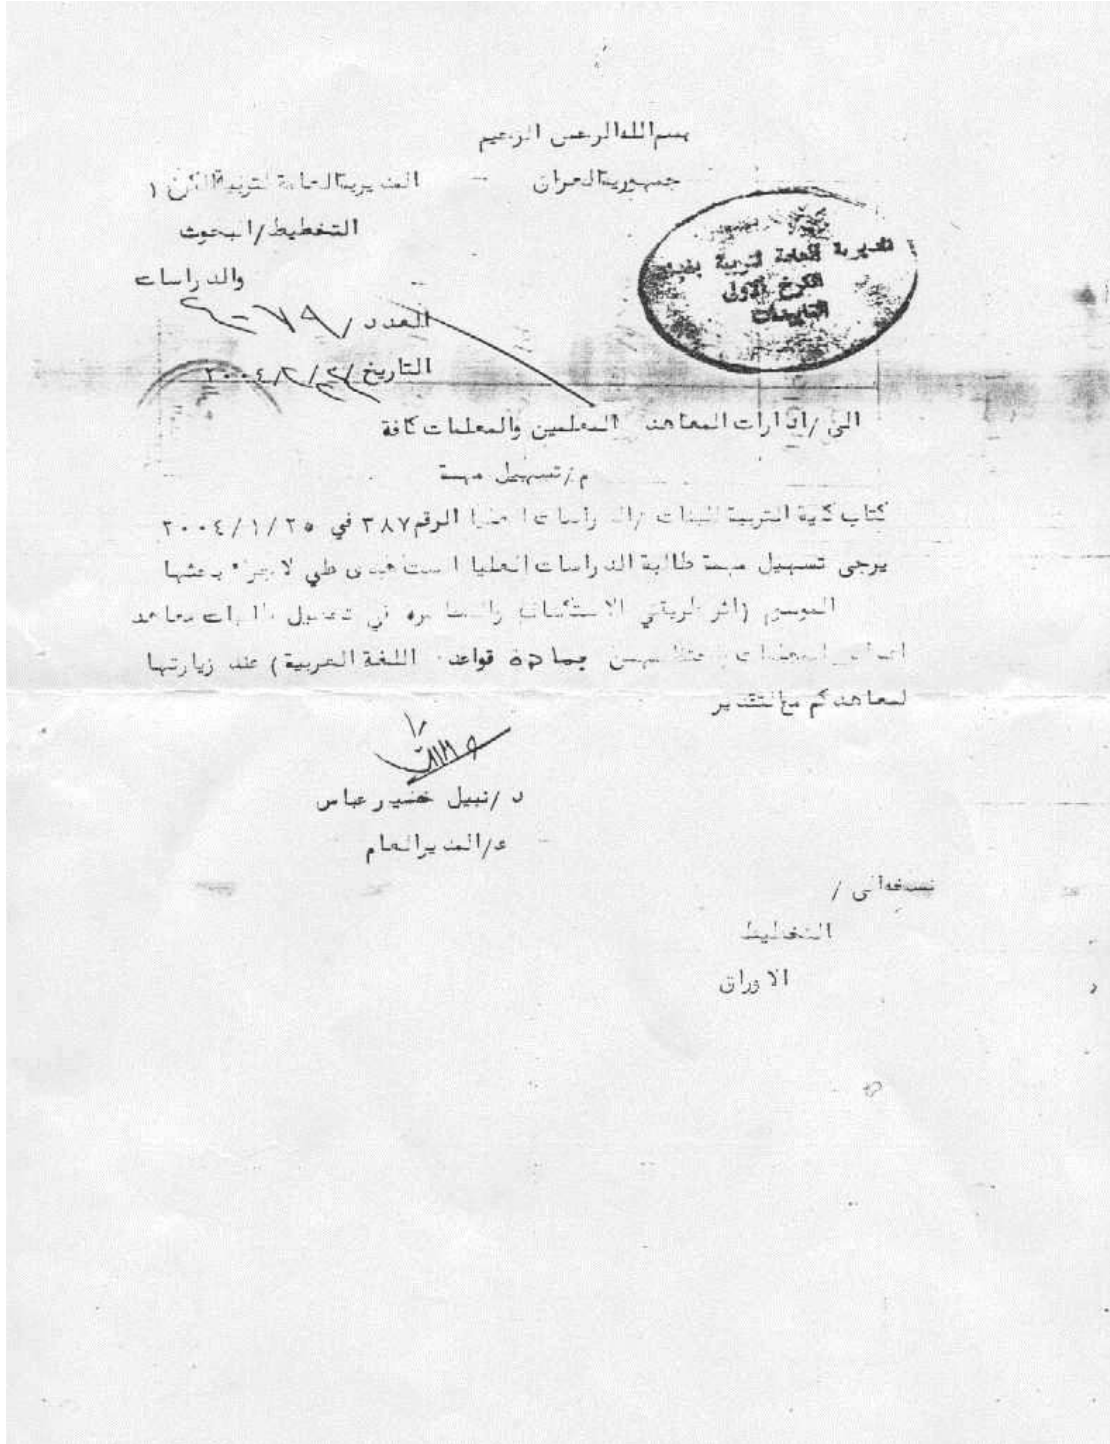 بسم الله الرحمن الرحيم
جمهورية العراق
المديرية العامة لتربية الكرخ ١
التخطيط/البحوث
والدراسات
العدد /
التاريخ / ٢٠٠٤
المديرية العامة لتربية بغداد
الكرخ الاولى
الى /ادارات المعاهد المعلمين والمعلمات كافة
م/تسهيل مهمة
كتاب كلية التربية للبنات /الدراسات العليا الرقم ٣٨٧ في ٢٠٠٤/١/٢٥
يرجى تسهيل مهمة طالبة الدراسات العليا الست هدى طي لاجراء بحثها
الموسوم (اثر طريقتي الاستكشاف في تحصيل طالبات معاهد
اعداد المعلمات بمادة قواعد اللغة العربية) عند زيارتها
لمعاهدكم مع التقدير
د /نبيل خضير عباس
ع/المدير العام
نسخه الى /
التخطيط
الاوراق